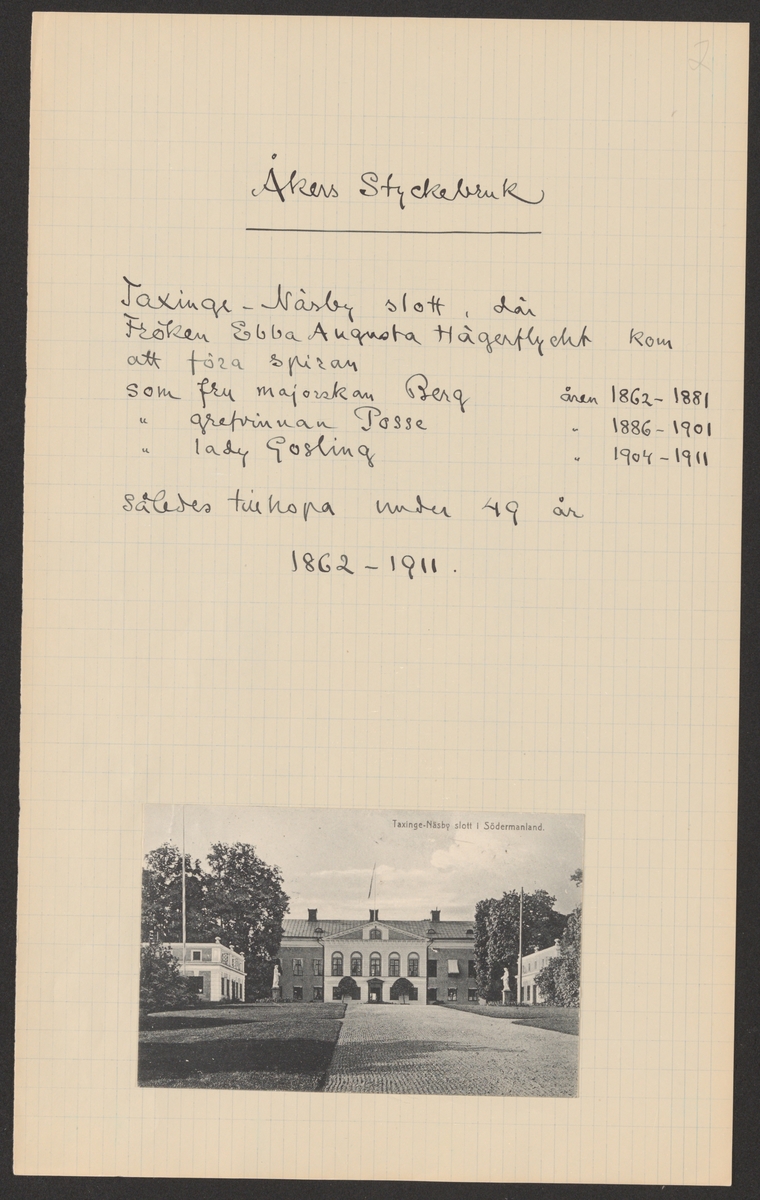 2
Åkers Styckebruk
Taxinge-Näsby slott, där
Fröken Ebba Augusta Hägerflycht kom
att föra spiran
som fru majorskan Berg åren 1862-1881
" grefvinnan Posse " 1886-1901
" lady Gosling " 1904-1911
således tillhopa under 49 år
1862-1911.
Taxinge-Näsby slott i Södermanland.